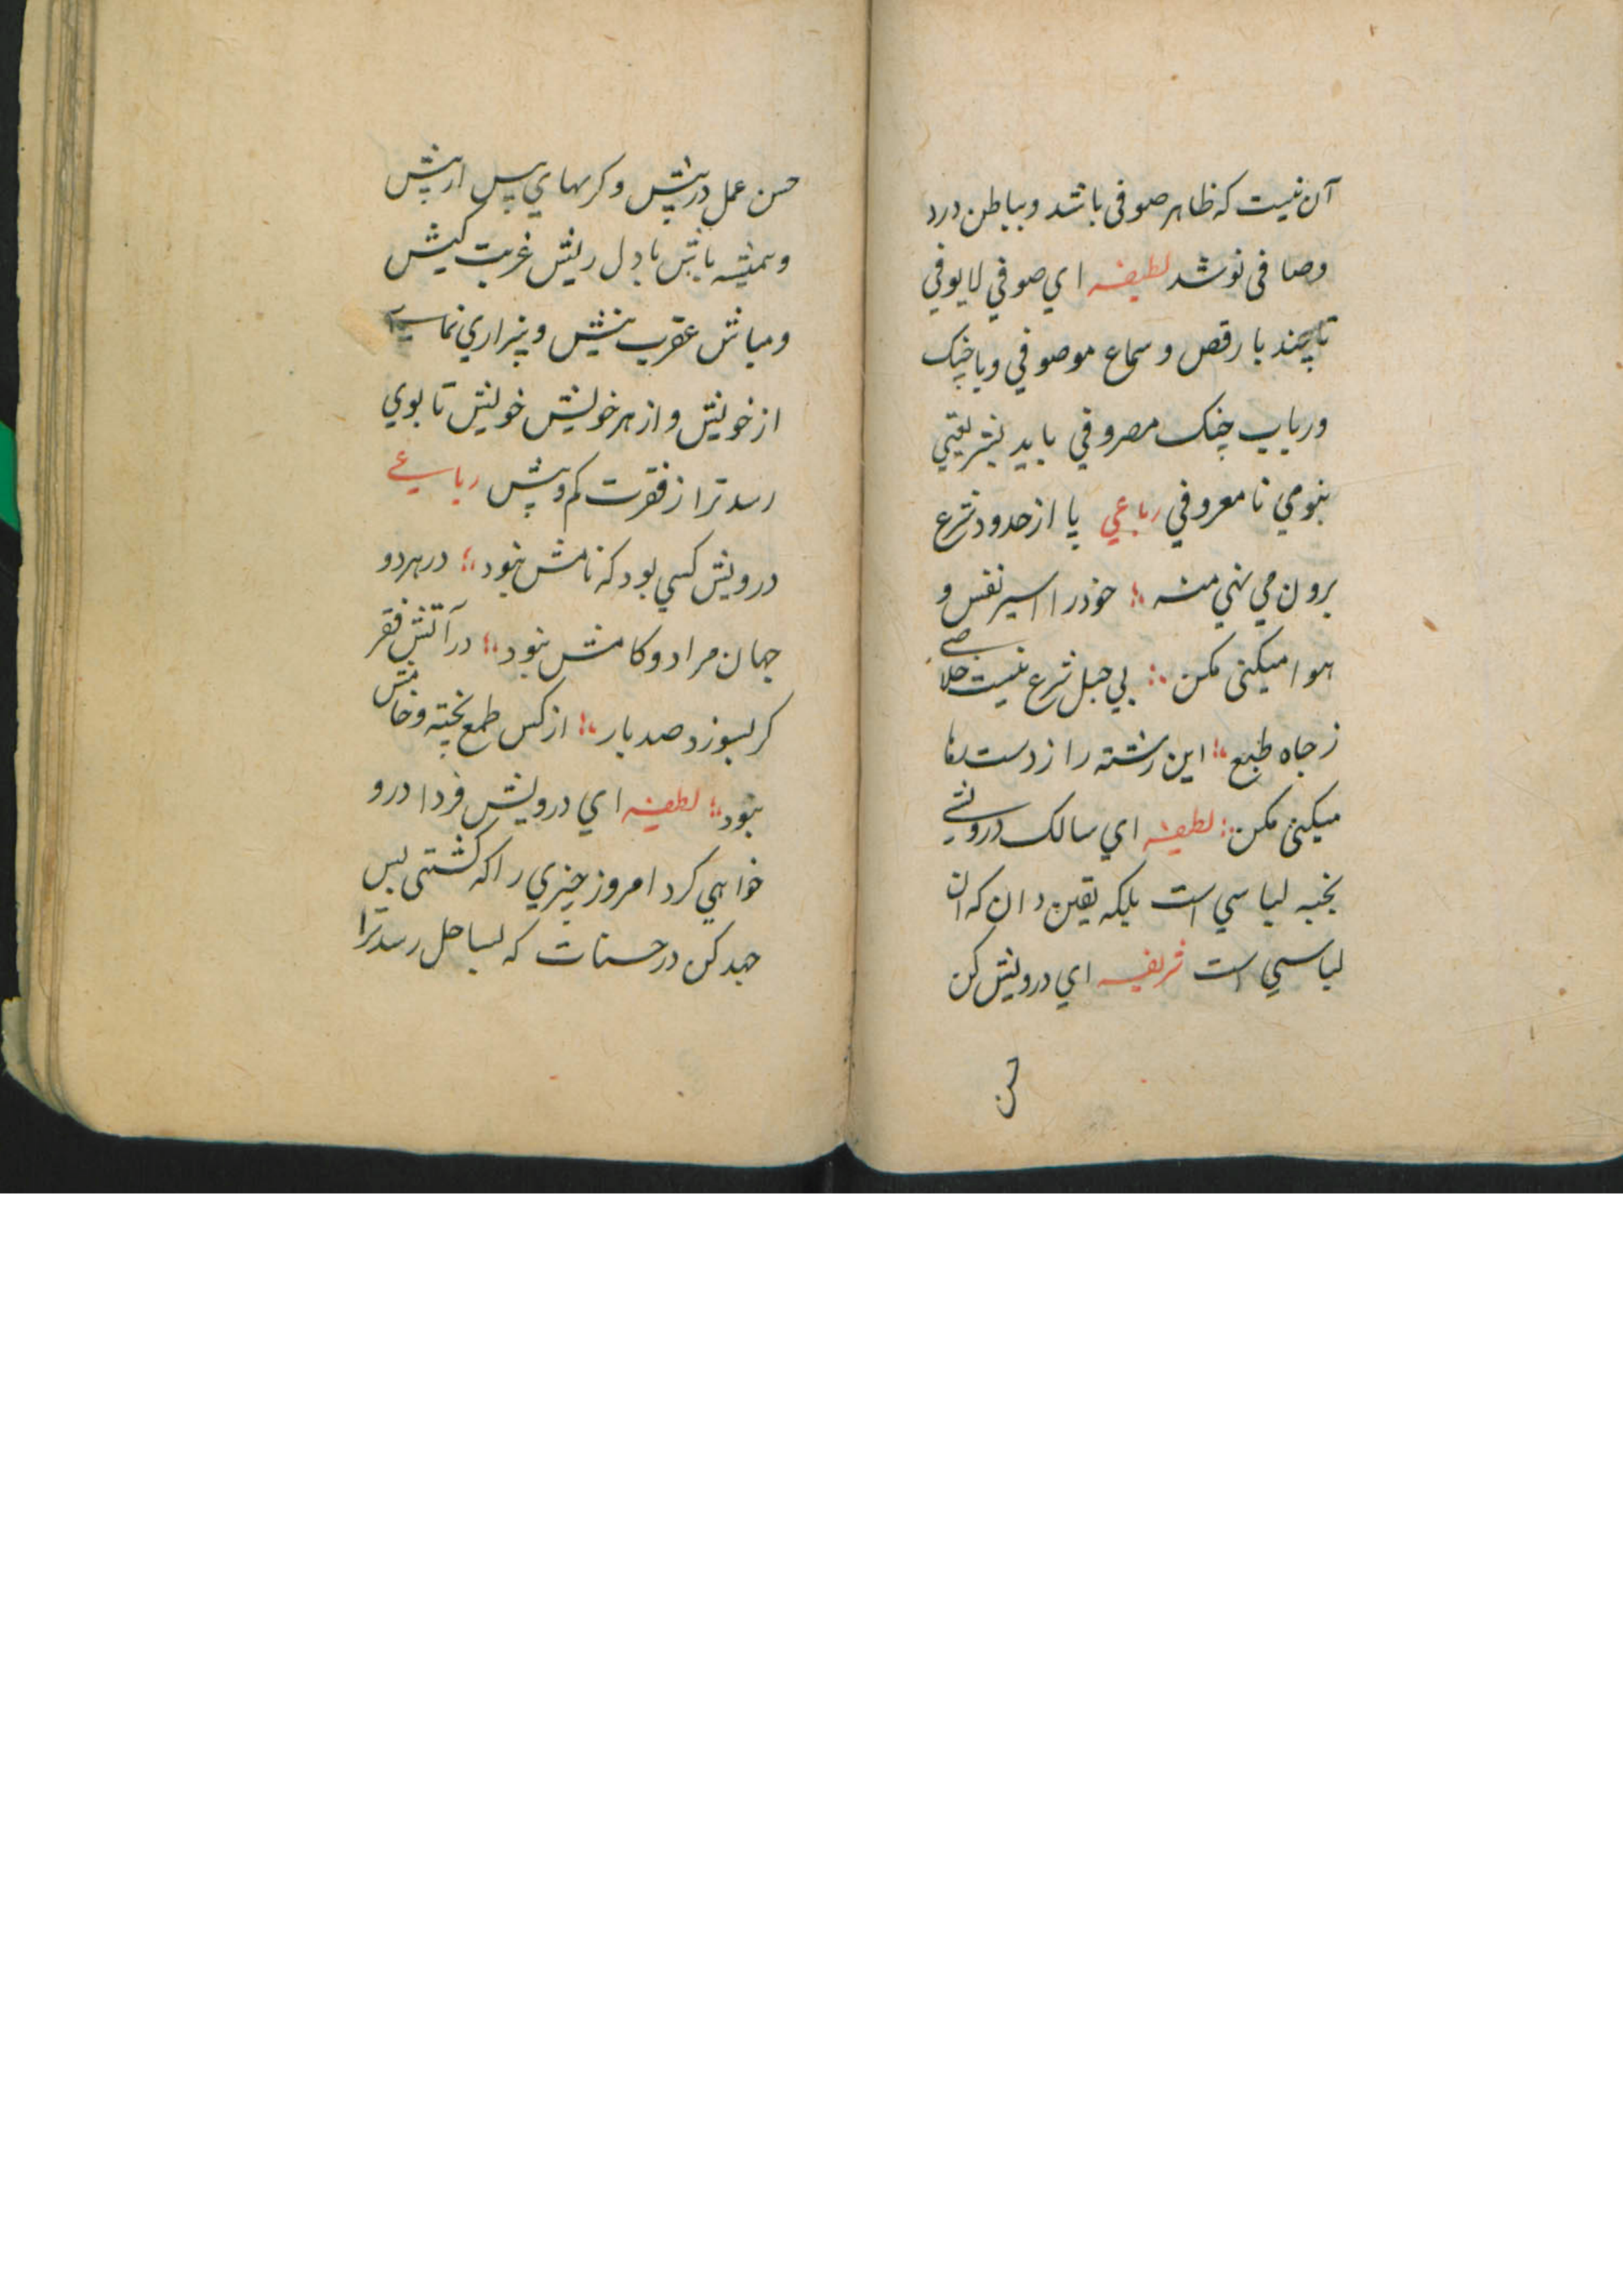 آن نیست که ظاهر صوفی باشد و بباطن درد
وصافی نوشد لطیفه ای صوفي لایوفي
تا چند با رقص و سماع موصوفي و با چنک
ورباب چنک مصروفي باید بشریعتي
بنومي نا معروفي رباعي پا از حدود شرع
برون مي نهي منه خود را اسیر نفس و
هوا میکنی مکن بي حبل شرع نیست خلاصے
ز جاه طبع این رشته را ز دست رها
میکنی مکن لطیفه اي سالک درویشے
بخبه لباسي است بلکه یقین دان که ان
لباسي است شریفه اي درویش کن
حسن
حسن عمل در پیش و کرمهاي پس از پیش
وهمیشه باش با دل ریش غربت کیش
ومباش عقرب نیش و بیزاري نماے
از خویش و از هر خویش خویش تا بوي
رسد ترا از فقرت کم و بیش رباعے
درویش کسي بود که نامش نبود در هر دو
جهان مراد و کامش نبود در آتش فقر
کر بسوزد صد بار از کس طمع پخته و خامش
نبود لطیفه اي درویش فردا درو
خواهي کرد امروز چیزي را که کشتی پس
جهد کن در حسنات که بساحل رسد ترا